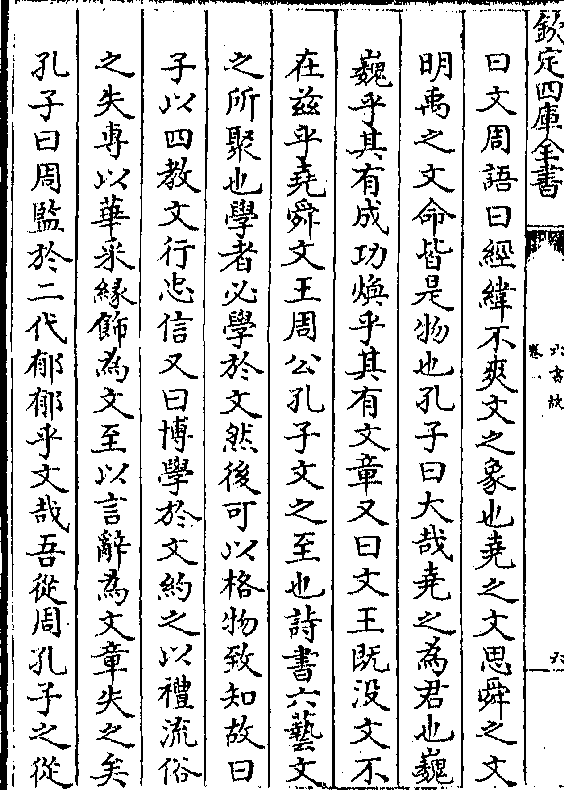 欽定四庫全書
六書故
卷
六
曰文周語曰經緯不爽文之象也堯之文思舜之文
明禹之文命皆是物也孔子曰大哉堯之為君也巍
巍乎其有成功煥乎其有文章又曰文王既没文不
在兹乎堯舜文王周公孔子文之至也詩書六藝文
之所聚也學者必學於文然後可以格物致知故曰
子以四教文行忠信又曰博學於文約之以禮流俗
之失專以華采緣飾為文至以言辭為文章失之矣
孔子曰周監於二代郁郁乎文哉吾從周孔子之從